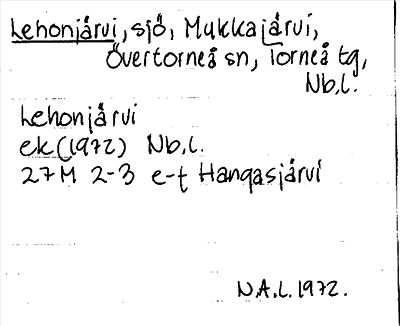 Lehonjärvi, sjö, Mukkajärvi,
Övertorneå sn, Torneå tg,
Nb,l.
Lehonjärvi
ek(1972) Nb,l.
27M 2-3 e-f Hangasjärvi
N.A.L. 1972.